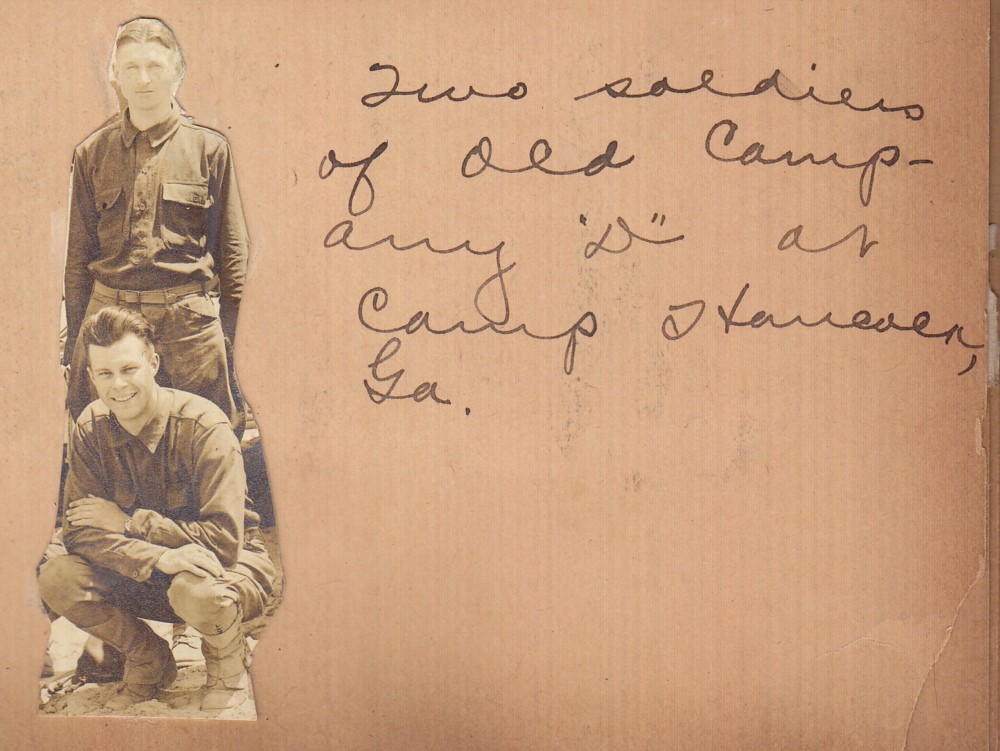 Two soldiers
of Old Comp-
any "D" at
Camp Hancock,
Ga.